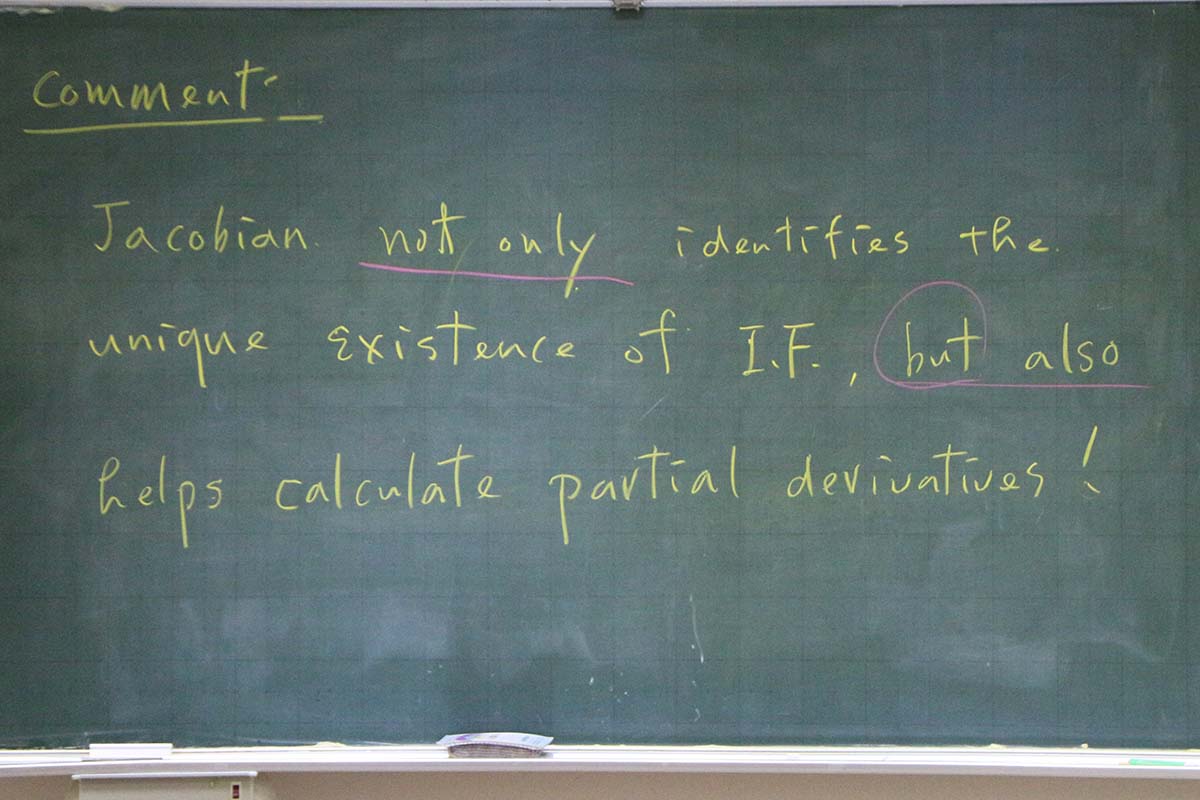 Comment:
Jacobian not only identifies the
unique existence of I.F., but also
helps calculate partial derivatives!